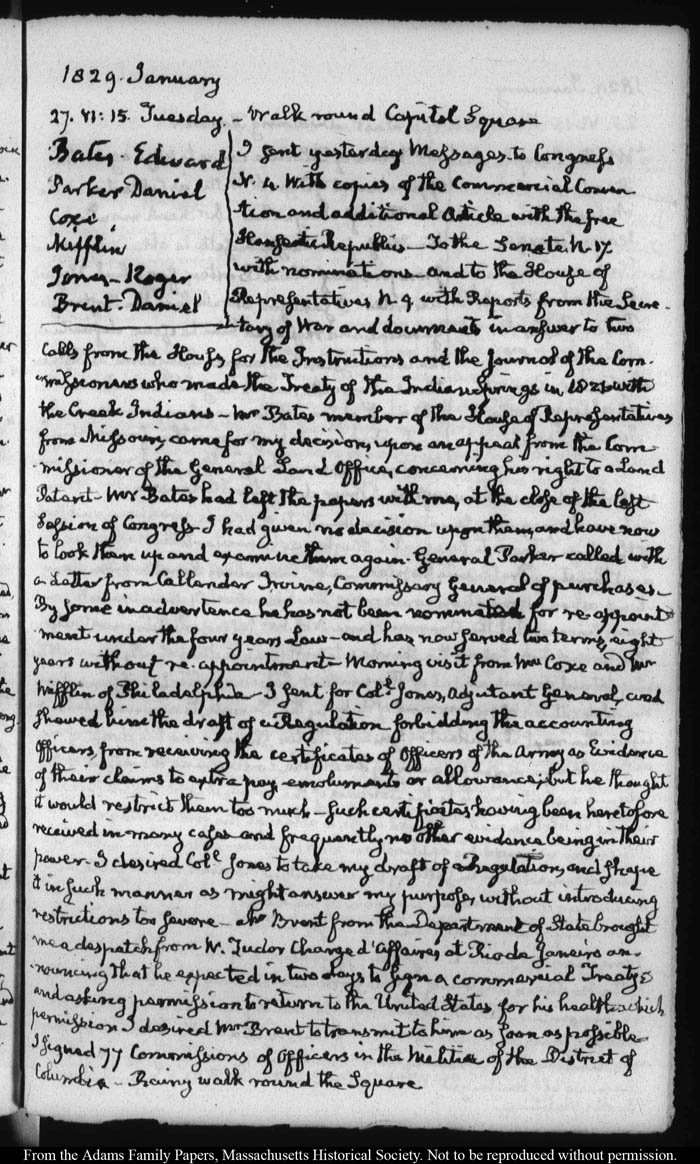 1829. January
27. VI:15. Tuesday. – Walk round Capitol Square
Bates. Edward
Parker Daniel
Coxe
Mifflin
Jones – Roger
Brent. Daniel
I sent yesterday Messages to Congress
N. 4. With copies of the Commercial Conven
tion and additional Article with the free
Hanseatic Republics – To the Senate N. 17
with nominations – and to the House of
Representatives N. 9. with Reports from the Secre-
tary of War and documents in answer to two
calls from the House for the Instructions and the Journal of the Com-
missioners who made the Treaty of the Indian Springs in 1821 with
the Creek Indians – Mr Bates member of the House of Representatives
from Missouri, came for my decision, upon an appeal from the Com
missioner of the General Land Office, concerning his right to a Land
Patent – Mr Bates had left the papers with me, at the close of the last
Session of Congress – I had given no decision upon them, and have now
to look them up and examine them again. General Parker called with
a Letter from Callender Irvine, Commissary General of purchases –
By some inadvertence he has not been nominated for re-appoint
ment under the four years Law – and has now served two terms, eight
years without re-appointment – Morning visit from Mr Coxe and Mr
Mifflin of Philadelphia – I sent for Coll. Jones, Adjutant General, and
shewed him the draft of a Regulation forbidding the accounting
Officers, from receiving the certificates of Officers of the Army as Evidence
of their claims to extra pay emoluments or allowance; but he thought
it would restrict them too much – such certificates having been heretofore
received in many cases and frequently no other evidence being in their
power – I desired Coll. Jones to take my draft of a Regulation, and shape
it in such manner as might answer my purpose, without introducing
restrictions too severe – Mr Brent from the Department of State brought
me a despatch from W. Tudor Chargé d'Affaires at Rio de Janeiro an-
nouncing that he expected in two days to sign a commercial Treaty:
and asking permission to return to the United States for his health: which
permission I desired Mr Brent to transmit to him as soon as possible –
I signed 77 Commissions of Officers in the Militia of the District of
Columbia – Rainy walk round the Square
From the Adams Family Papers, Massachusetts Historical Society. Not to be reproduced without permission.